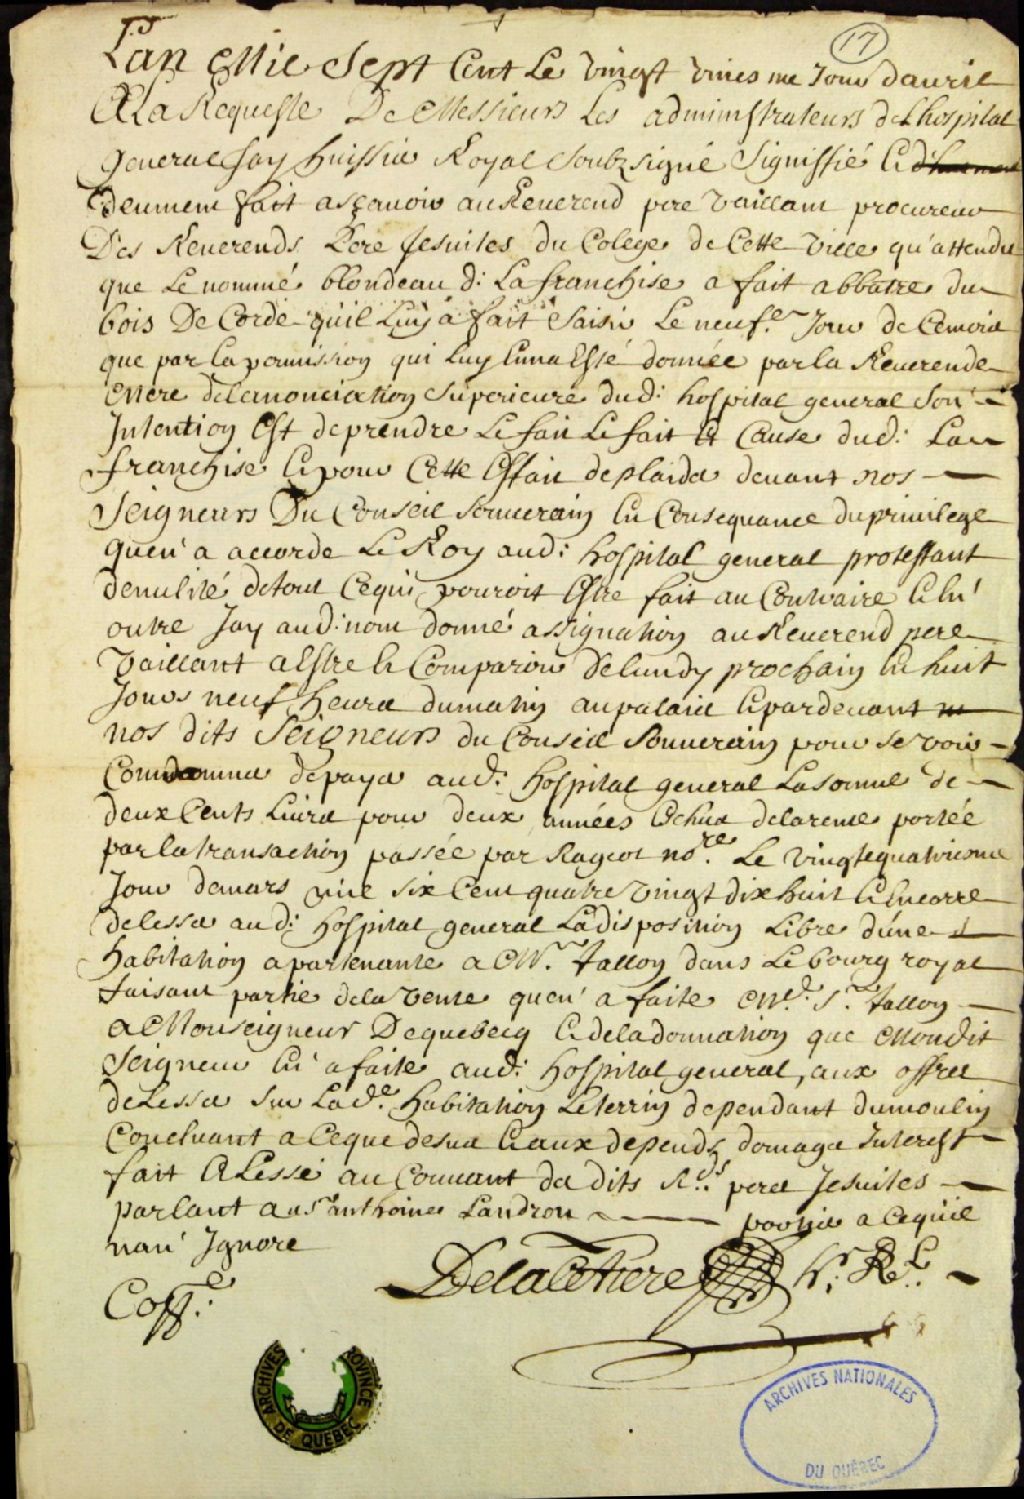 17
Lan Mil Sept Cent Le vingt uniesme Jour davril
A La Requeste De Messieurs Les administrateurs de Lhospital
General Jay huissier Royal soubzsigné Signiffié et
Deument fait asçavoir au Reverend pere vaillant procureur
Des Reverends Pere Jesuites du Colege de Cette ville qu'attendu
que Le nommé blondeau d: La franchise a fait abbatre du
bois De Corde qu'il Luy a fait Saisir Le neuf.e Jour de Cemois
que par la permission qui luy en na Esté donnée par la Reverende
Mere delanonciation Superieure dud: hospital general Son
Intention Est de prendre Le fait Le fait Et Cause dud: La
franchise et pour Cette Effait de plaider devant nos
Seigneurs Du Conseil Souverain En Consequance du privilege
quen a accorde Le Roy aud: hospital general protestant
denulité detout Cequi pouroit Estre fait au Contraire et En
outre Jay aud: nom donné assignation au Reverend pere
Vaillant a Estre et Comparoir de lundy prochain En huit
Jours neuf heures dumatin au palais et pardevant
nos dits Seigneurs du Conseil Souverain pour se voir
Comdamner de payer aud: hospital general La somme de
deux Cents Livres pour deux années Echues de larente portée
par la transaction passée par Rageot no.re Le vingtequatriesme
Jour demars mil six Cent quatre vingt dix huit et Encorre
delesser aud: hospital general La disposition Libre d'une
habitation apartenante a Mr. Tallon dans Le bourg royal
faisant partie dela vente quen a faite Md. Sr. Tallon
a Monseigneur De quebecq et dela donnation que Mondit
Seigneur En a faite aud: hospital general, aux offres
deLesser sur Lad.e habitation Le terrin dependant dumoulin
Concluant a Ceque desus et aux depends domages Interest
fait & Lessé au Couvant des dits R.ds peres Jesuites
parlant au Sr anthoine Landron pour a Cequil
nan Ignore
Delacetiere h. R.l
Cop.e
ARCHIVES PROVINCE DE QUÉBEC
ARCHIVES NATIONALES
DU QUÉBEC